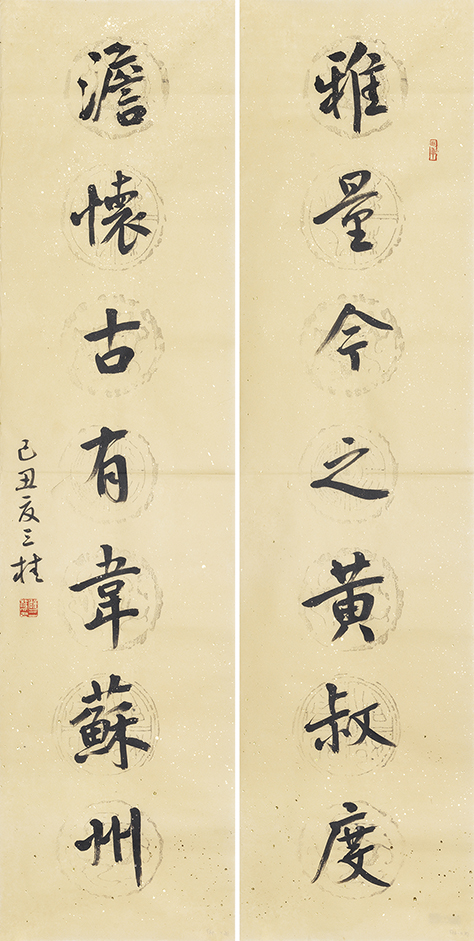 雅量今之黃叔度
澹懷古有韋蘇州
己丑夏三桂